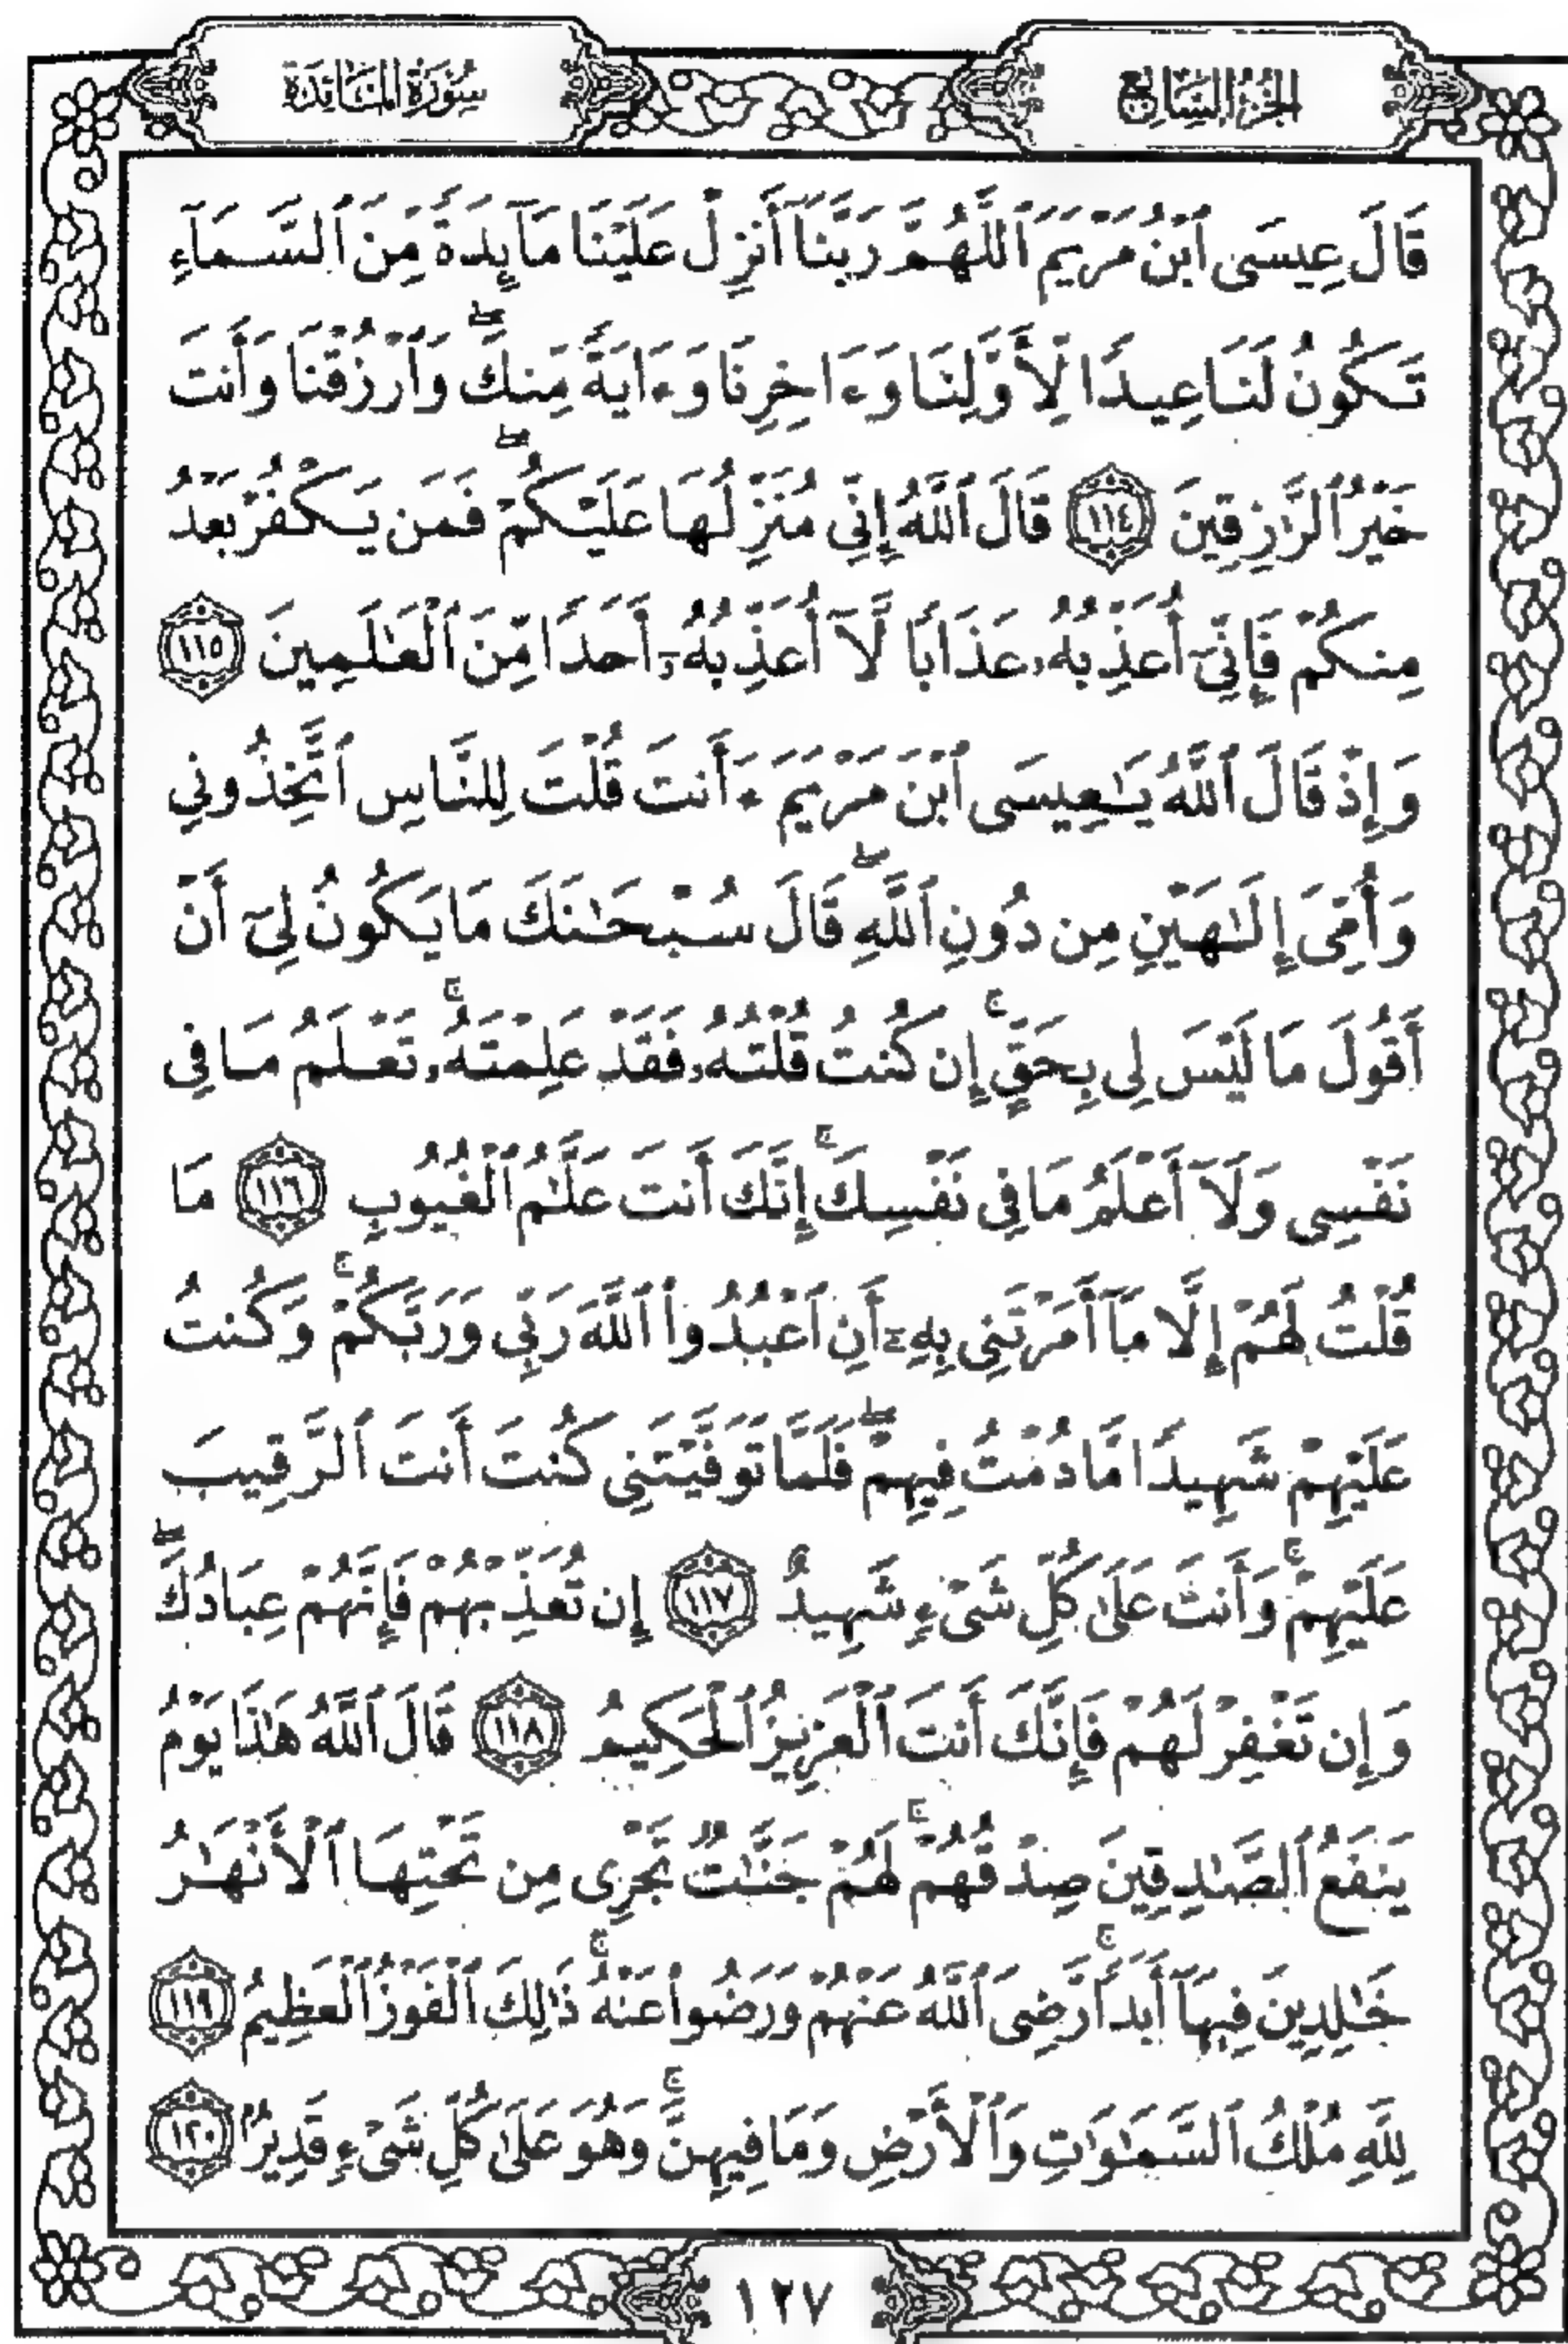 الجزء السابع
سورة المائدة
قَالَ عِيسَى ٱبْنُ مَرْيَمَ ٱللَّهُمَّ رَبَّنَآ أَنزِلْ عَلَيْنَا مَآئِدَةً مِّنَ ٱلسَّمَآءِ
تَكُونُ لَنَا عِيدًا لِّأَوَّلِنَا وَءَاخِرِنَا وَءَايَةً مِّنكَ ۖ وَٱرْزُقْنَا وَأَنتَ
خَيْرُ ٱلرَّٰزِقِينَ ١١٤ قَالَ ٱللَّهُ إِنِّى مُنَزِّلُهَا عَلَيْكُمْ ۖ فَمَن يَكْفُرْ بَعْدُ
مِنكُمْ فَإِنِّىٓ أُعَذِّبُهُۥ عَذَابًا لَّآ أُعَذِّبُهُۥٓ أَحَدًا مِّنَ ٱلْعَٰلَمِينَ ١١٥
وَإِذْ قَالَ ٱللَّهُ يَٰعِيسَى ٱبْنَ مَرْيَمَ ءَأَنتَ قُلْتَ لِلنَّاسِ ٱتَّخِذُونِى
وَأُمِّىَ إِلَٰهَيْنِ مِن دُونِ ٱللَّهِ ۖ قَالَ سُبْحَٰنَكَ مَا يَكُونُ لِىٓ أَنْ
أَقُولَ مَا لَيْسَ لِى بِحَقٍّ ۚ إِن كُنتُ قُلْتُهُۥ فَقَدْ عَلِمْتَهُۥ ۚ تَعْلَمُ مَا فِى
نَفْسِى وَلَآ أَعْلَمُ مَا فِى نَفْسِكَ ۚ إِنَّكَ أَنتَ عَلَّٰمُ ٱلْغُيُوبِ ١١٦ مَا
قُلْتُ لَهُمْ إِلَّا مَآ أَمَرْتَنِى بِهِۦٓ أَنِ ٱعْبُدُوا۟ ٱللَّهَ رَبِّى وَرَبَّكُمْ ۚ وَكُنتُ
عَلَيْهِمْ شَهِيدًا مَّا دُمْتُ فِيهِمْ ۖ فَلَمَّا تَوَفَّيْتَنِى كُنتَ أَنتَ ٱلرَّقِيبَ
عَلَيْهِمْ ۚ وَأَنتَ عَلَىٰ كُلِّ شَىْءٍ شَهِيدٌ ١١٧ إِن تُعَذِّبْهُمْ فَإِنَّهُمْ عِبَادُكَ ۖ
وَإِن تَغْفِرْ لَهُمْ فَإِنَّكَ أَنتَ ٱلْعَزِيزُ ٱلْحَكِيمُ ١١٨ قَالَ ٱللَّهُ هَٰذَا يَوْمُ
يَنفَعُ ٱلصَّٰدِقِينَ صِدْقُهُمْ ۚ لَهُمْ جَنَّٰتٌ تَجْرِى مِن تَحْتِهَا ٱلْأَنْهَٰرُ
خَٰلِدِينَ فِيهَآ أَبَدًا ۚ رَّضِىَ ٱللَّهُ عَنْهُمْ وَرَضُوا۟ عَنْهُ ۚ ذَٰلِكَ ٱلْفَوْزُ ٱلْعَظِيمُ ١١٩
لِلَّهِ مُلْكُ ٱلسَّمَٰوَٰتِ وَٱلْأَرْضِ وَمَا فِيهِنَّ ۚ وَهُوَ عَلَىٰ كُلِّ شَىْءٍ قَدِيرٌۢ ١٢٠
١٢٧